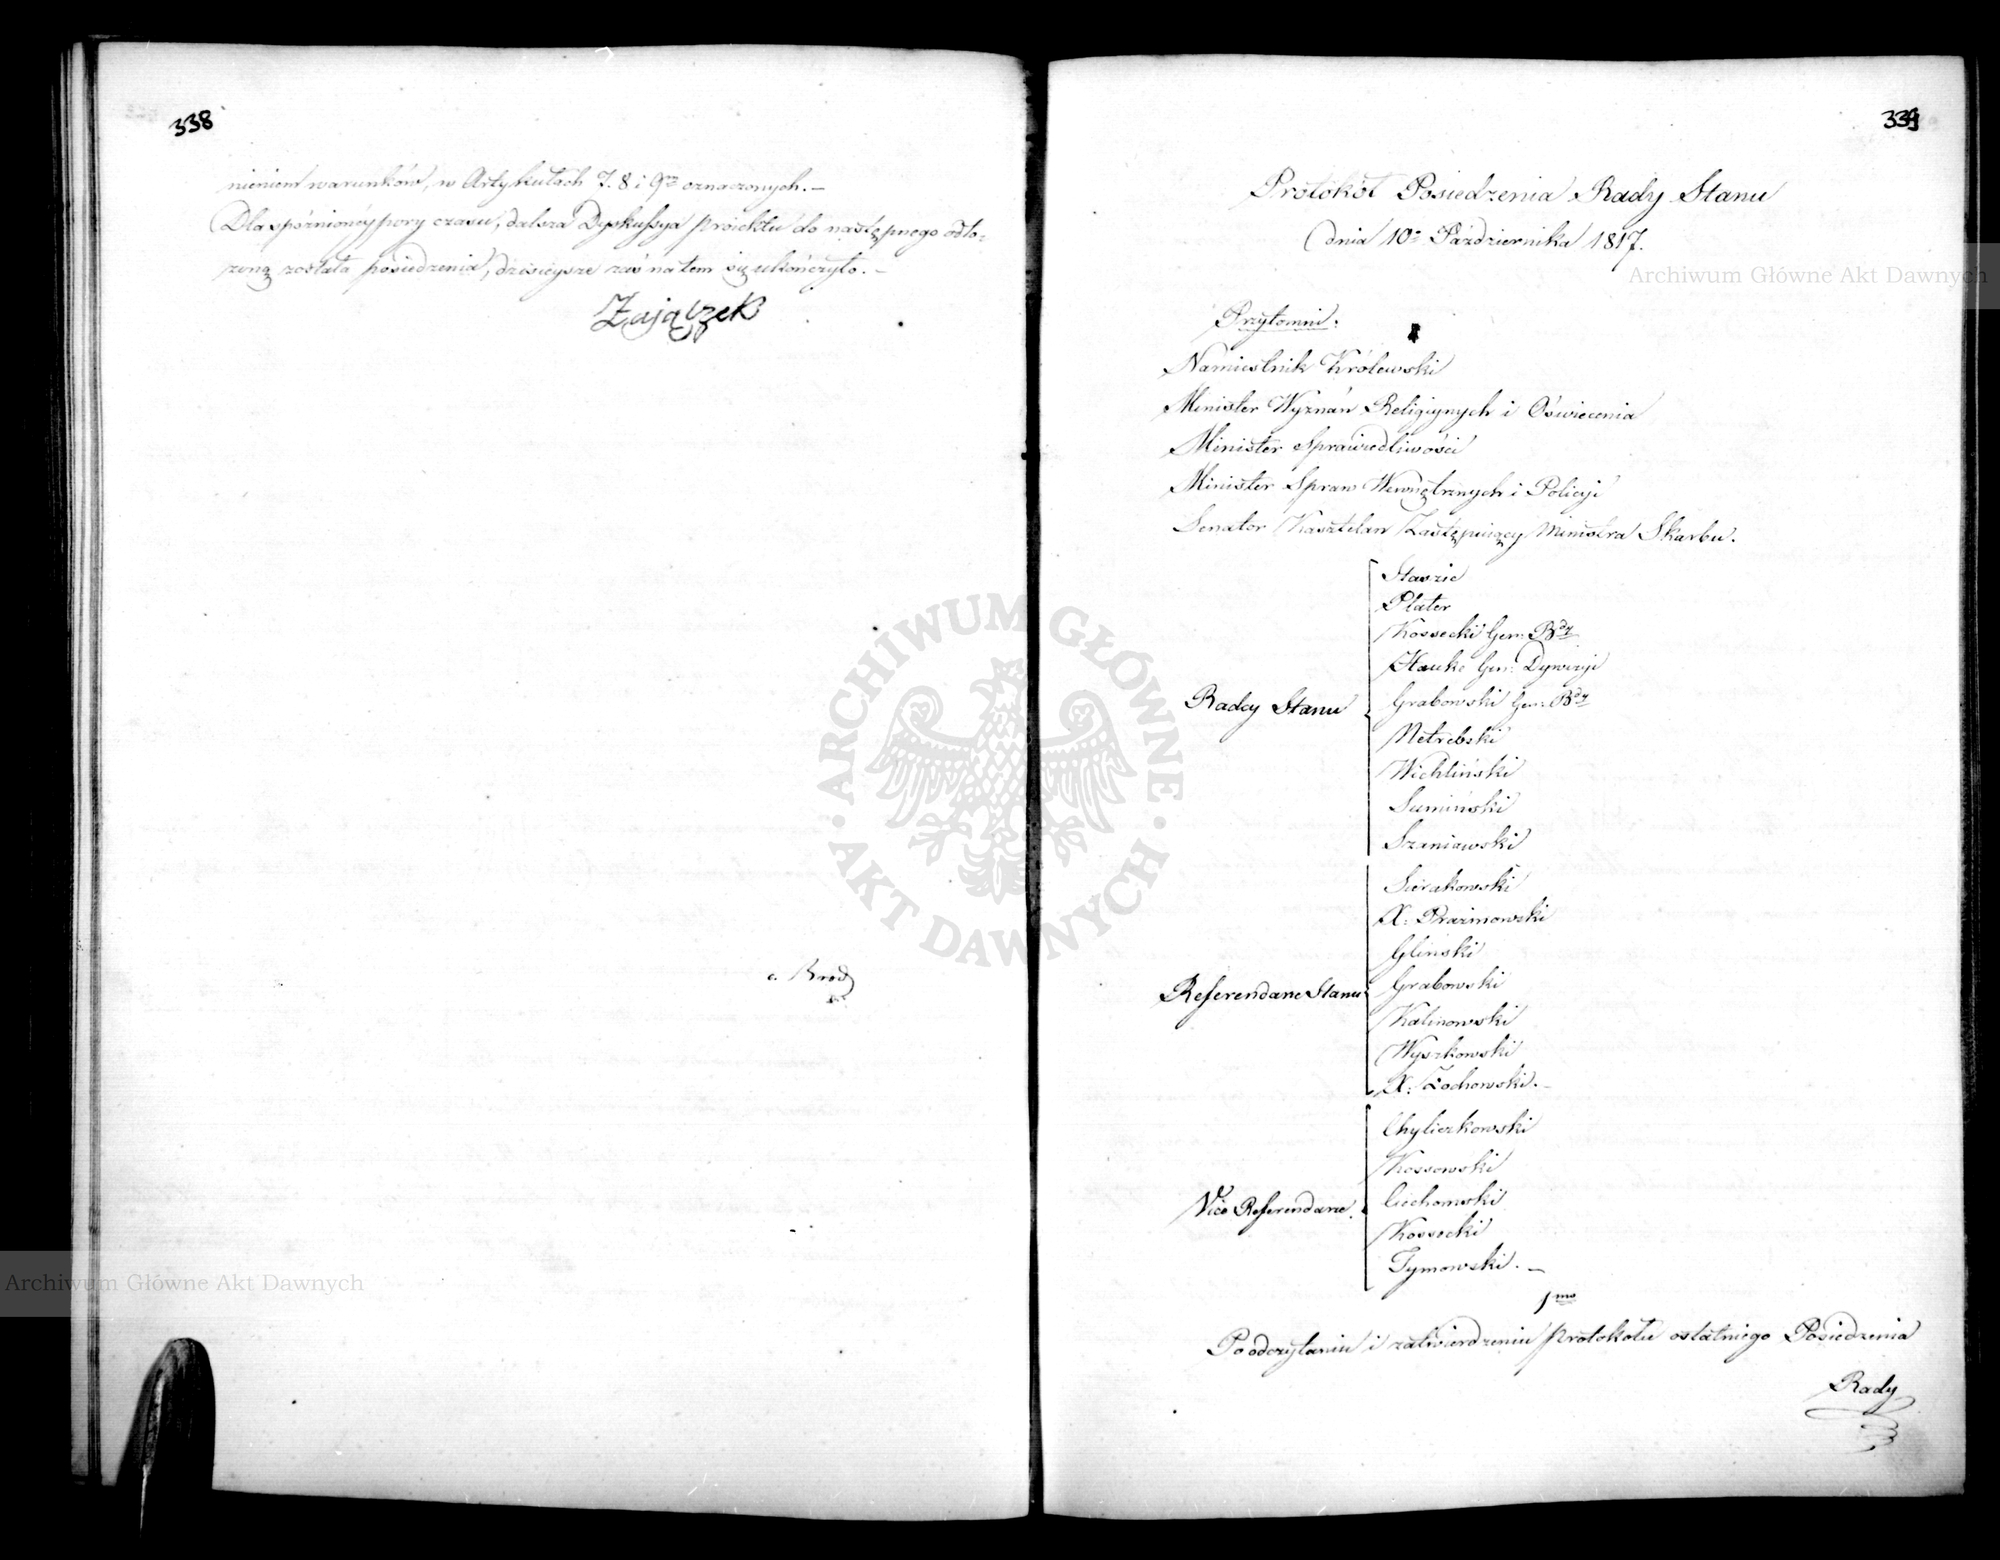 338
nieniem warunków, w Artykułach 7. 8 i 9m oznaczonych. –
Dla spóźnionéy pory czasu, dalsza Dyskussya proiektu do następnego odło-
żoną została posiedzenia, dzisieysze zaś na tem się ukończyło. –
Zajączek
339
Protokół Posiedzenia Rady Stanu
dnia 10o Października 1817.
Przytomni:
Namiestnik Królewski
Minister Wyznań Religijnych i Oświecenia
Minister Sprawiedliwości
Minister Spraw Wewnętrznych i Policyi
Senator Kasztelan Zastępuiący Ministra Skarbu.
Radcy Stanu
Staszic
Plater
Kossecki Gen: Bdy
Hauke Gen: Dywizyi
Grabowski Gen: Bdy
Netrebski
Wichliński
Sumiński
Szaniawski
Referendarze Stanu
Sierakowski
X. Prażmowski
Gliński
Grabowski
Kalinowski
Wyszkowski
X. Żochowski. –
Vice Referendarze.
Chyliczkowski
Kossowski
Ciechomski
Kossecki
Tymowski. –
1mo
Po odczytaniu i zatwierdzeniu protokółu ostatniego Posiedzenia
Rady
Archiwum Główne Akt Dawnych
ARCHIWUM GŁÓWNE · AKT DAWNYCH ·
Archiwum Główne Akt Dawnych